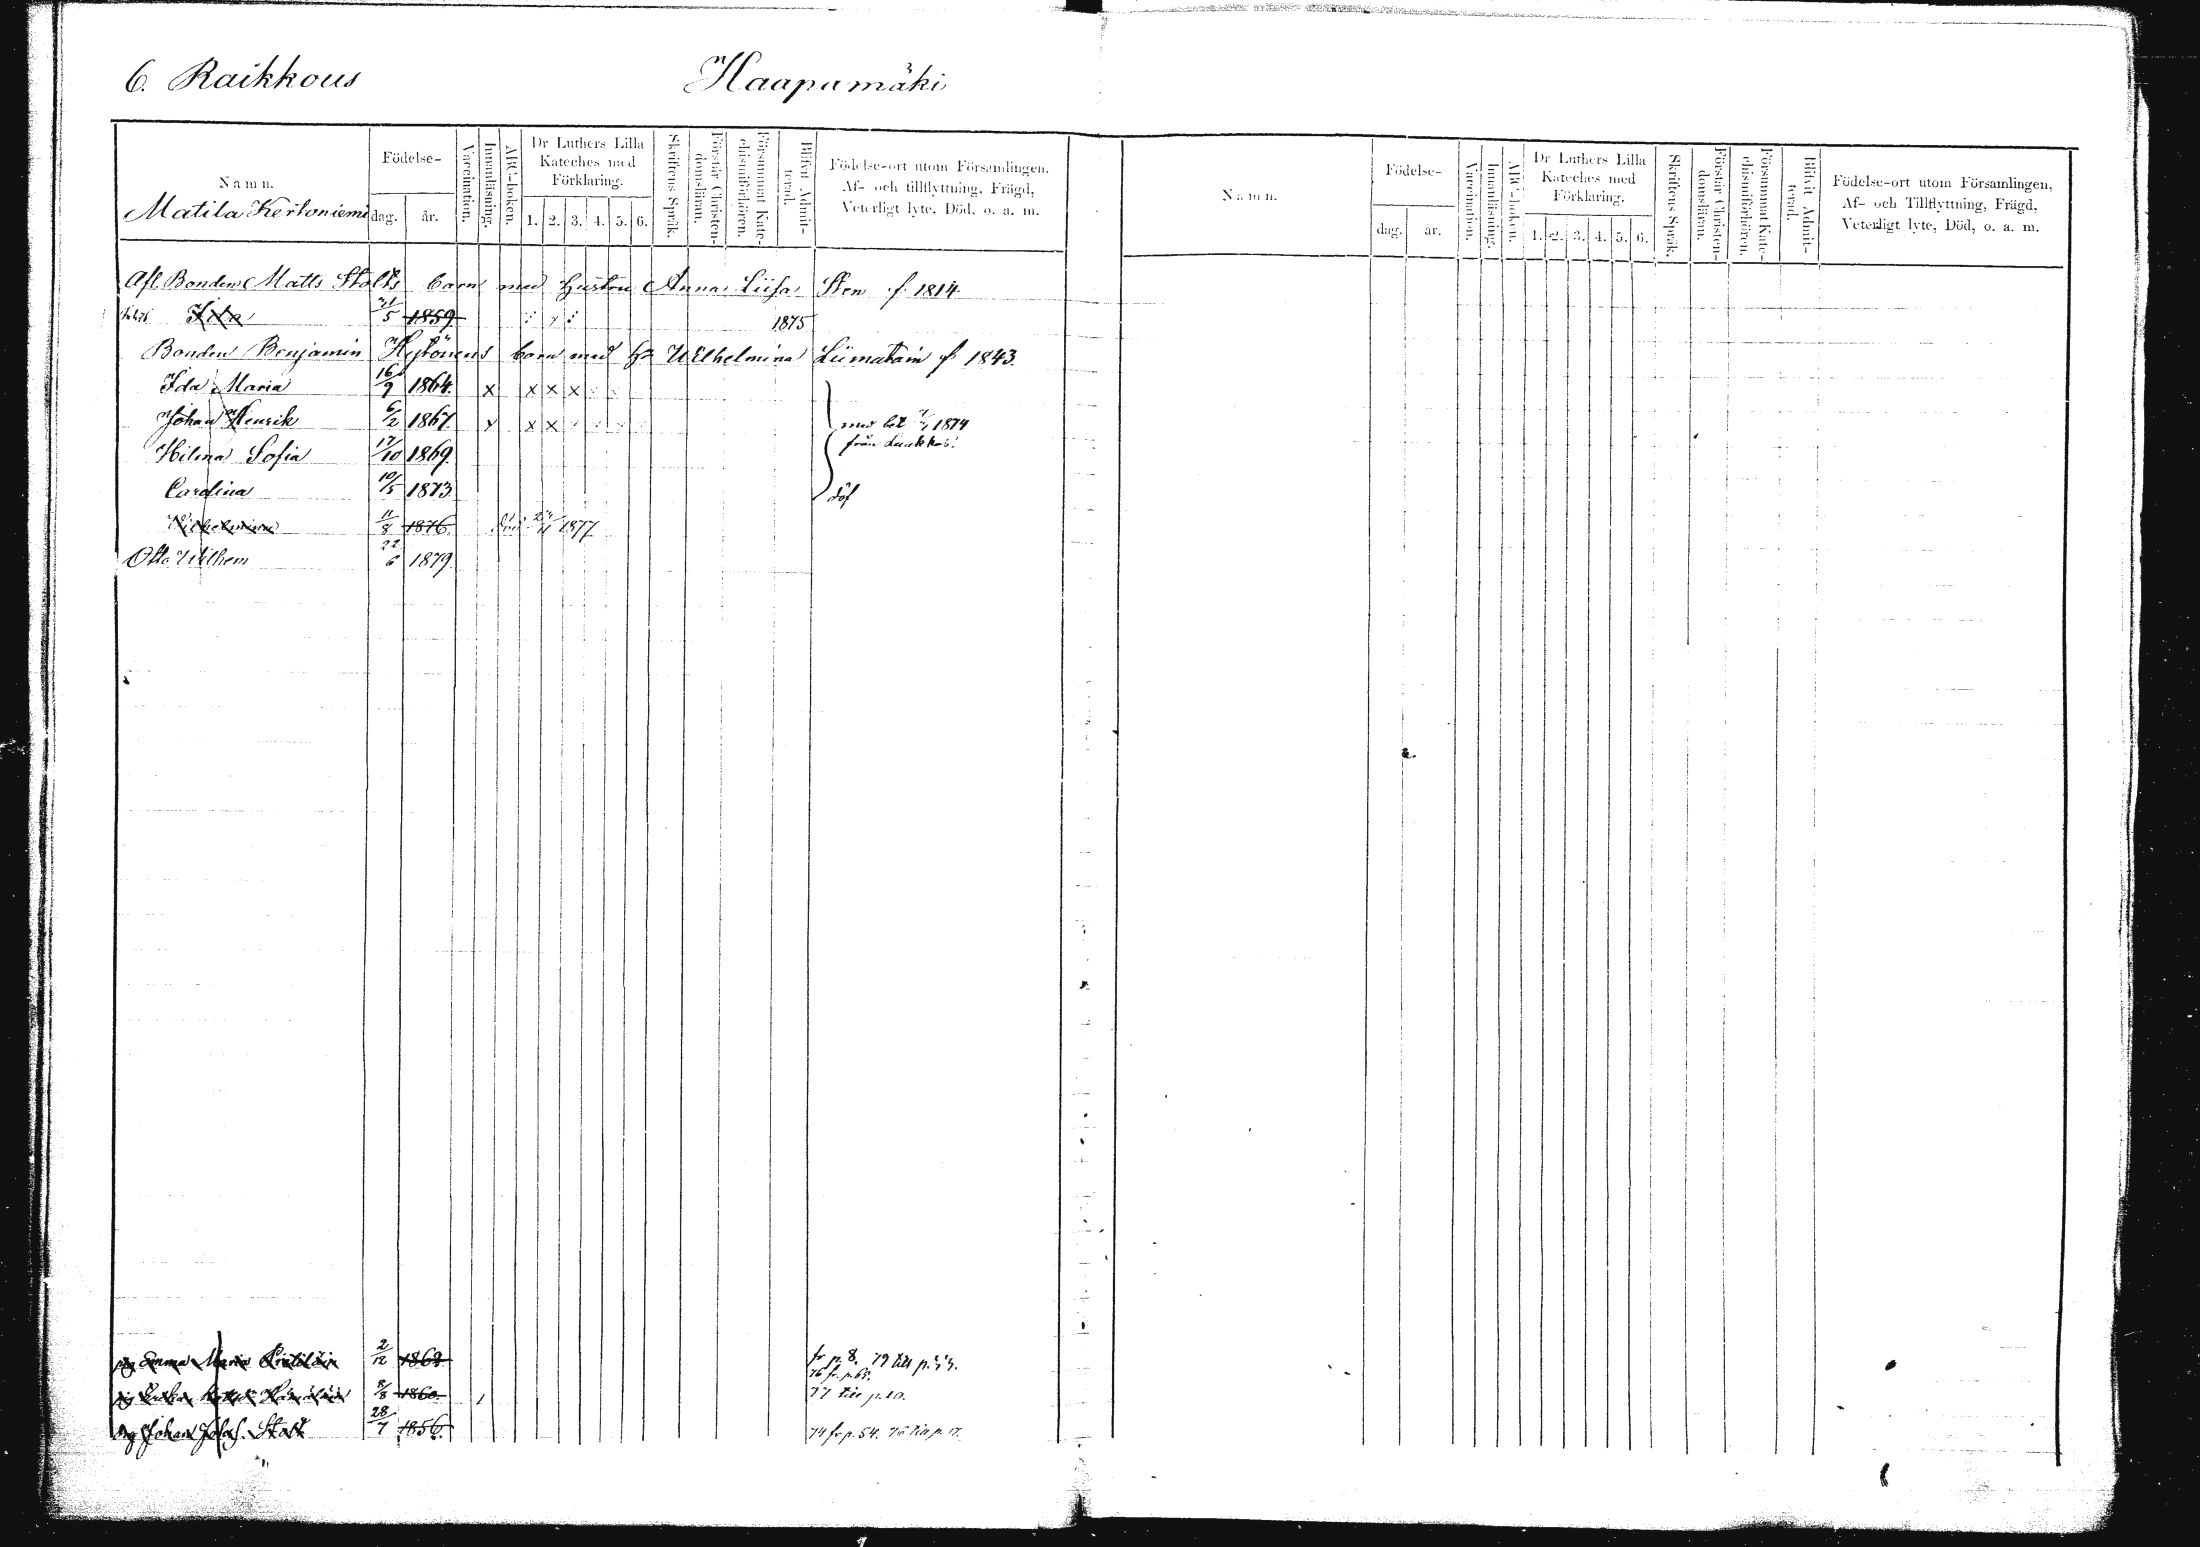 6. Raikkous
Haapamäki
Namn.
Matila Kertoniemi
Födelse-
dag.
år.
Vaccination.
Innanläsning.
ABC-boken.
Dr Luthers Lilla
Kateches med
Förklaring.
1. 2. 3. 4. 5. 6.
Skriftens Språk.
Förstår Christen-
domsläran.
Försummat Kate-
chismiförhören.
Blifvit Admit-
terad.
Födelse-ort utom Församlingen,
Af- och tillflyttning, Frägd,
Veterligt lyte, Död, o. a. m.
Afl. Bonden Matts Stolts barn med hustru Anna Liisa Sten f. 1814
Ida 5 1859 1875
Bonden Benjamin Hytönens barn med H. Wilhelmina Liimatain f. 1843
Ida Maria 16/9 1864. x x x x
Johan Henrik 6/2 1867. x x x med bet 1874
från Laukkas
Hilma Sofia 17/10 1869.
Carolina 10/5 1873 döf
Wilhelmina 11/8 1876. död 11 1877
Otto Wilhem 22/6 1879.
pig Emma Maria 2/12 1862 fr p. 8. 79 till p.
76 fr. p. 63.
pig Hämäläin 8/8 1860. 77 till p. 10.
Johan Stolt 28/7 1856. 74 fr p. 54. till p. 17.
Namn.
Födelse-
dag.
år.
Vaccination.
Innanläsning.
ABC-boken.
Dr Luthers Lilla
Kateches med
Förklaring.
1. 2. 3. 4. 5. 6.
Skriftens Språk.
Förstår Christen-
domsläran.
Försummat Kate-
chismiförhören.
Blifvit Admit-
terad.
Födelse-ort utom Församlingen,
Af- och Tillflyttning, Frägd,
Veterligt lyte, Död, o. a. m.